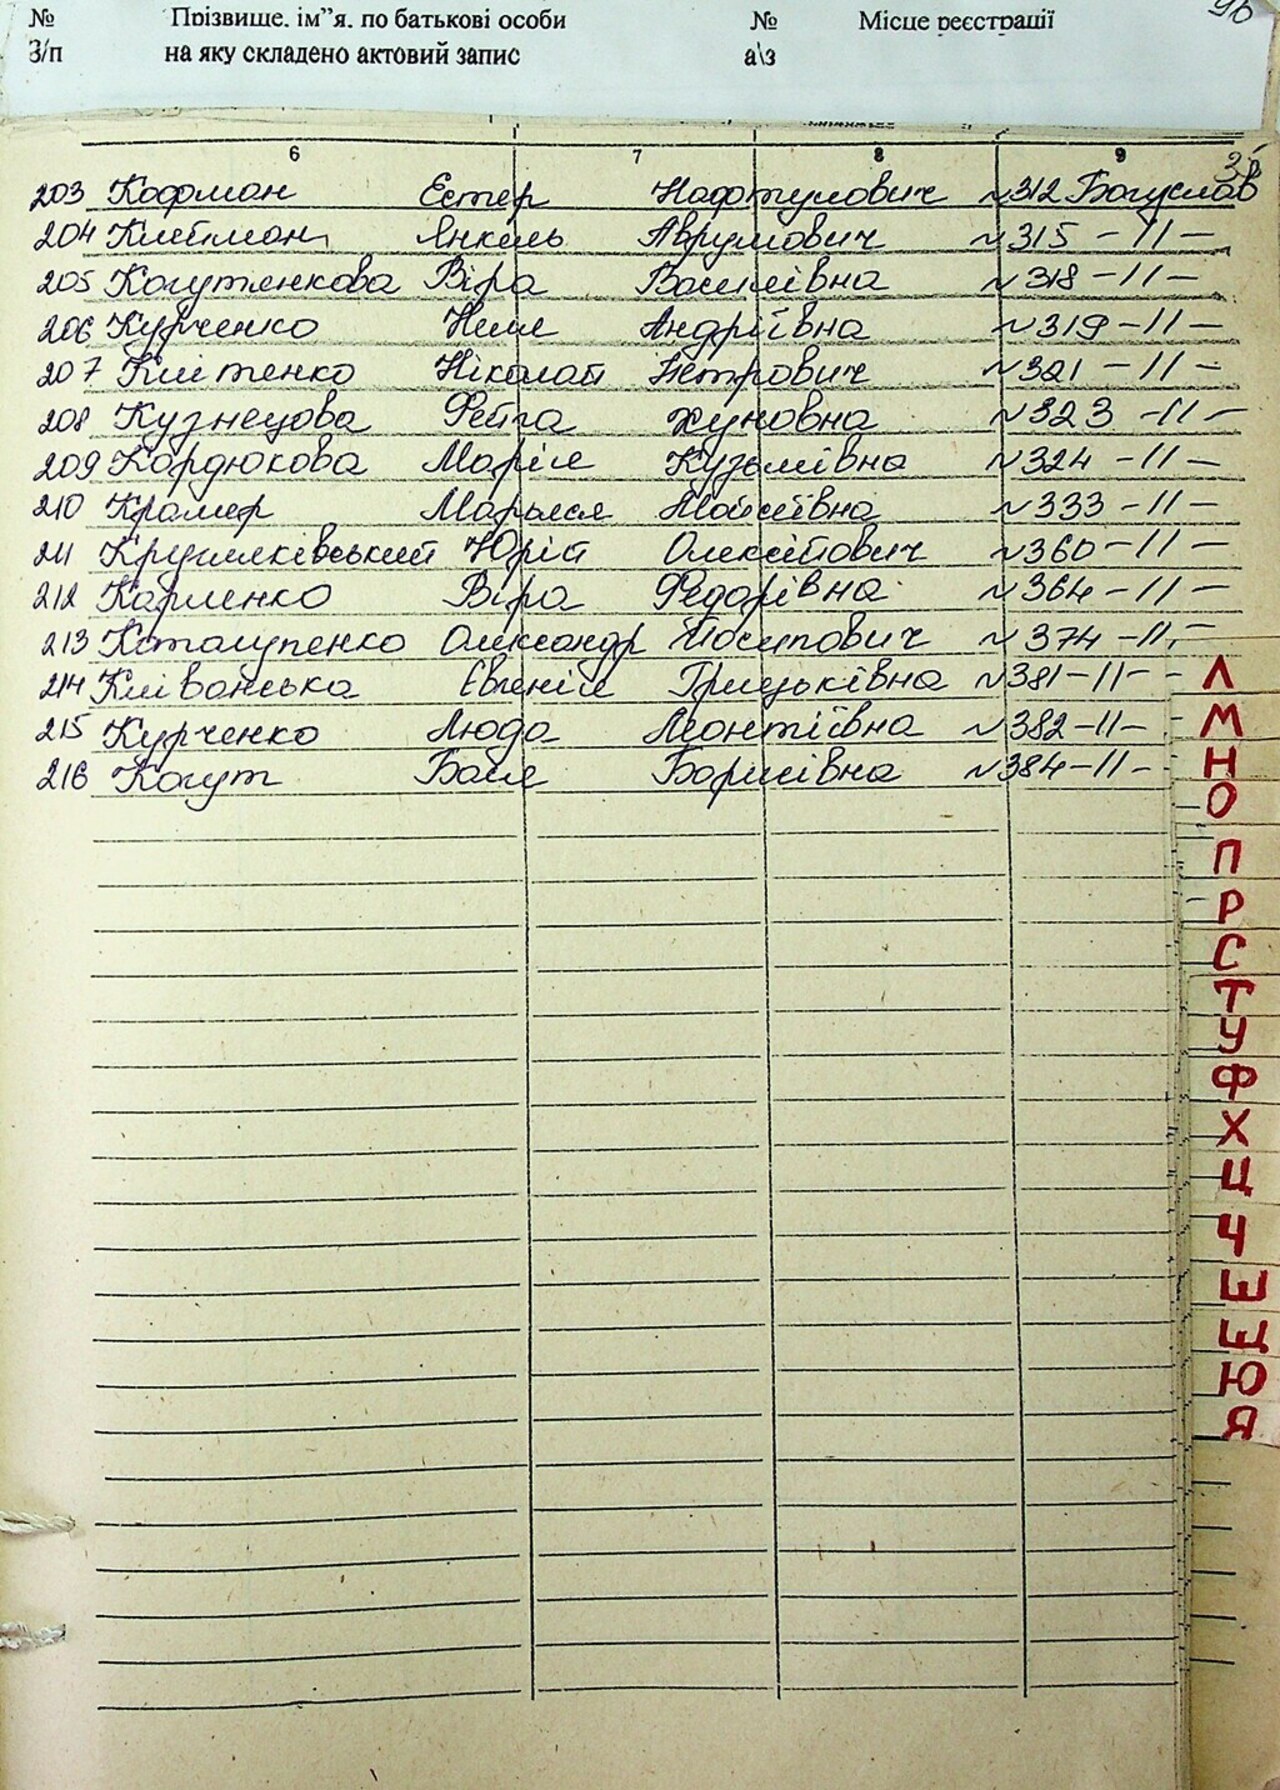 № Прізвище, ім”я, по батькові особи № Місце реєстрації 96
З/п на яку складено актовий запис а\з
6 7 8 9
203 Кофман Естер Нафтулович №312 Богуслав
204 Клейман Янкель Аврумович №315 -11-
205 Когутенкова Віра Василівна №318 -11-
206 Курченко Неля Андріївна №319 -11-
207 Клітенко Ніколай Петрович №321 -11-
208 Кузнецова Фейга Хуновна №323 -11-
209 Кордюкова Марія Кузьмівна №324 -11-
210 Крамер Марьяся Мойсіївна №333 -11-
211 Кругляківський Юрій Олексійович №360 -11-
212 Карпенко Віра Федорівна №364 -11-
213 Котолупенко Олександр Йосипович №374 -11-
214 Кліванська Євгенія Грицьківна №381 -11-
215 Курченко Люда Леонтіївна №382 -11-
216 Когут Бася Борисівна №384 -11-
Л
М
Н
О
П
Р
С
Т
У
Ф
Х
Ц
Ч
Ш
Щ
Ю
Я